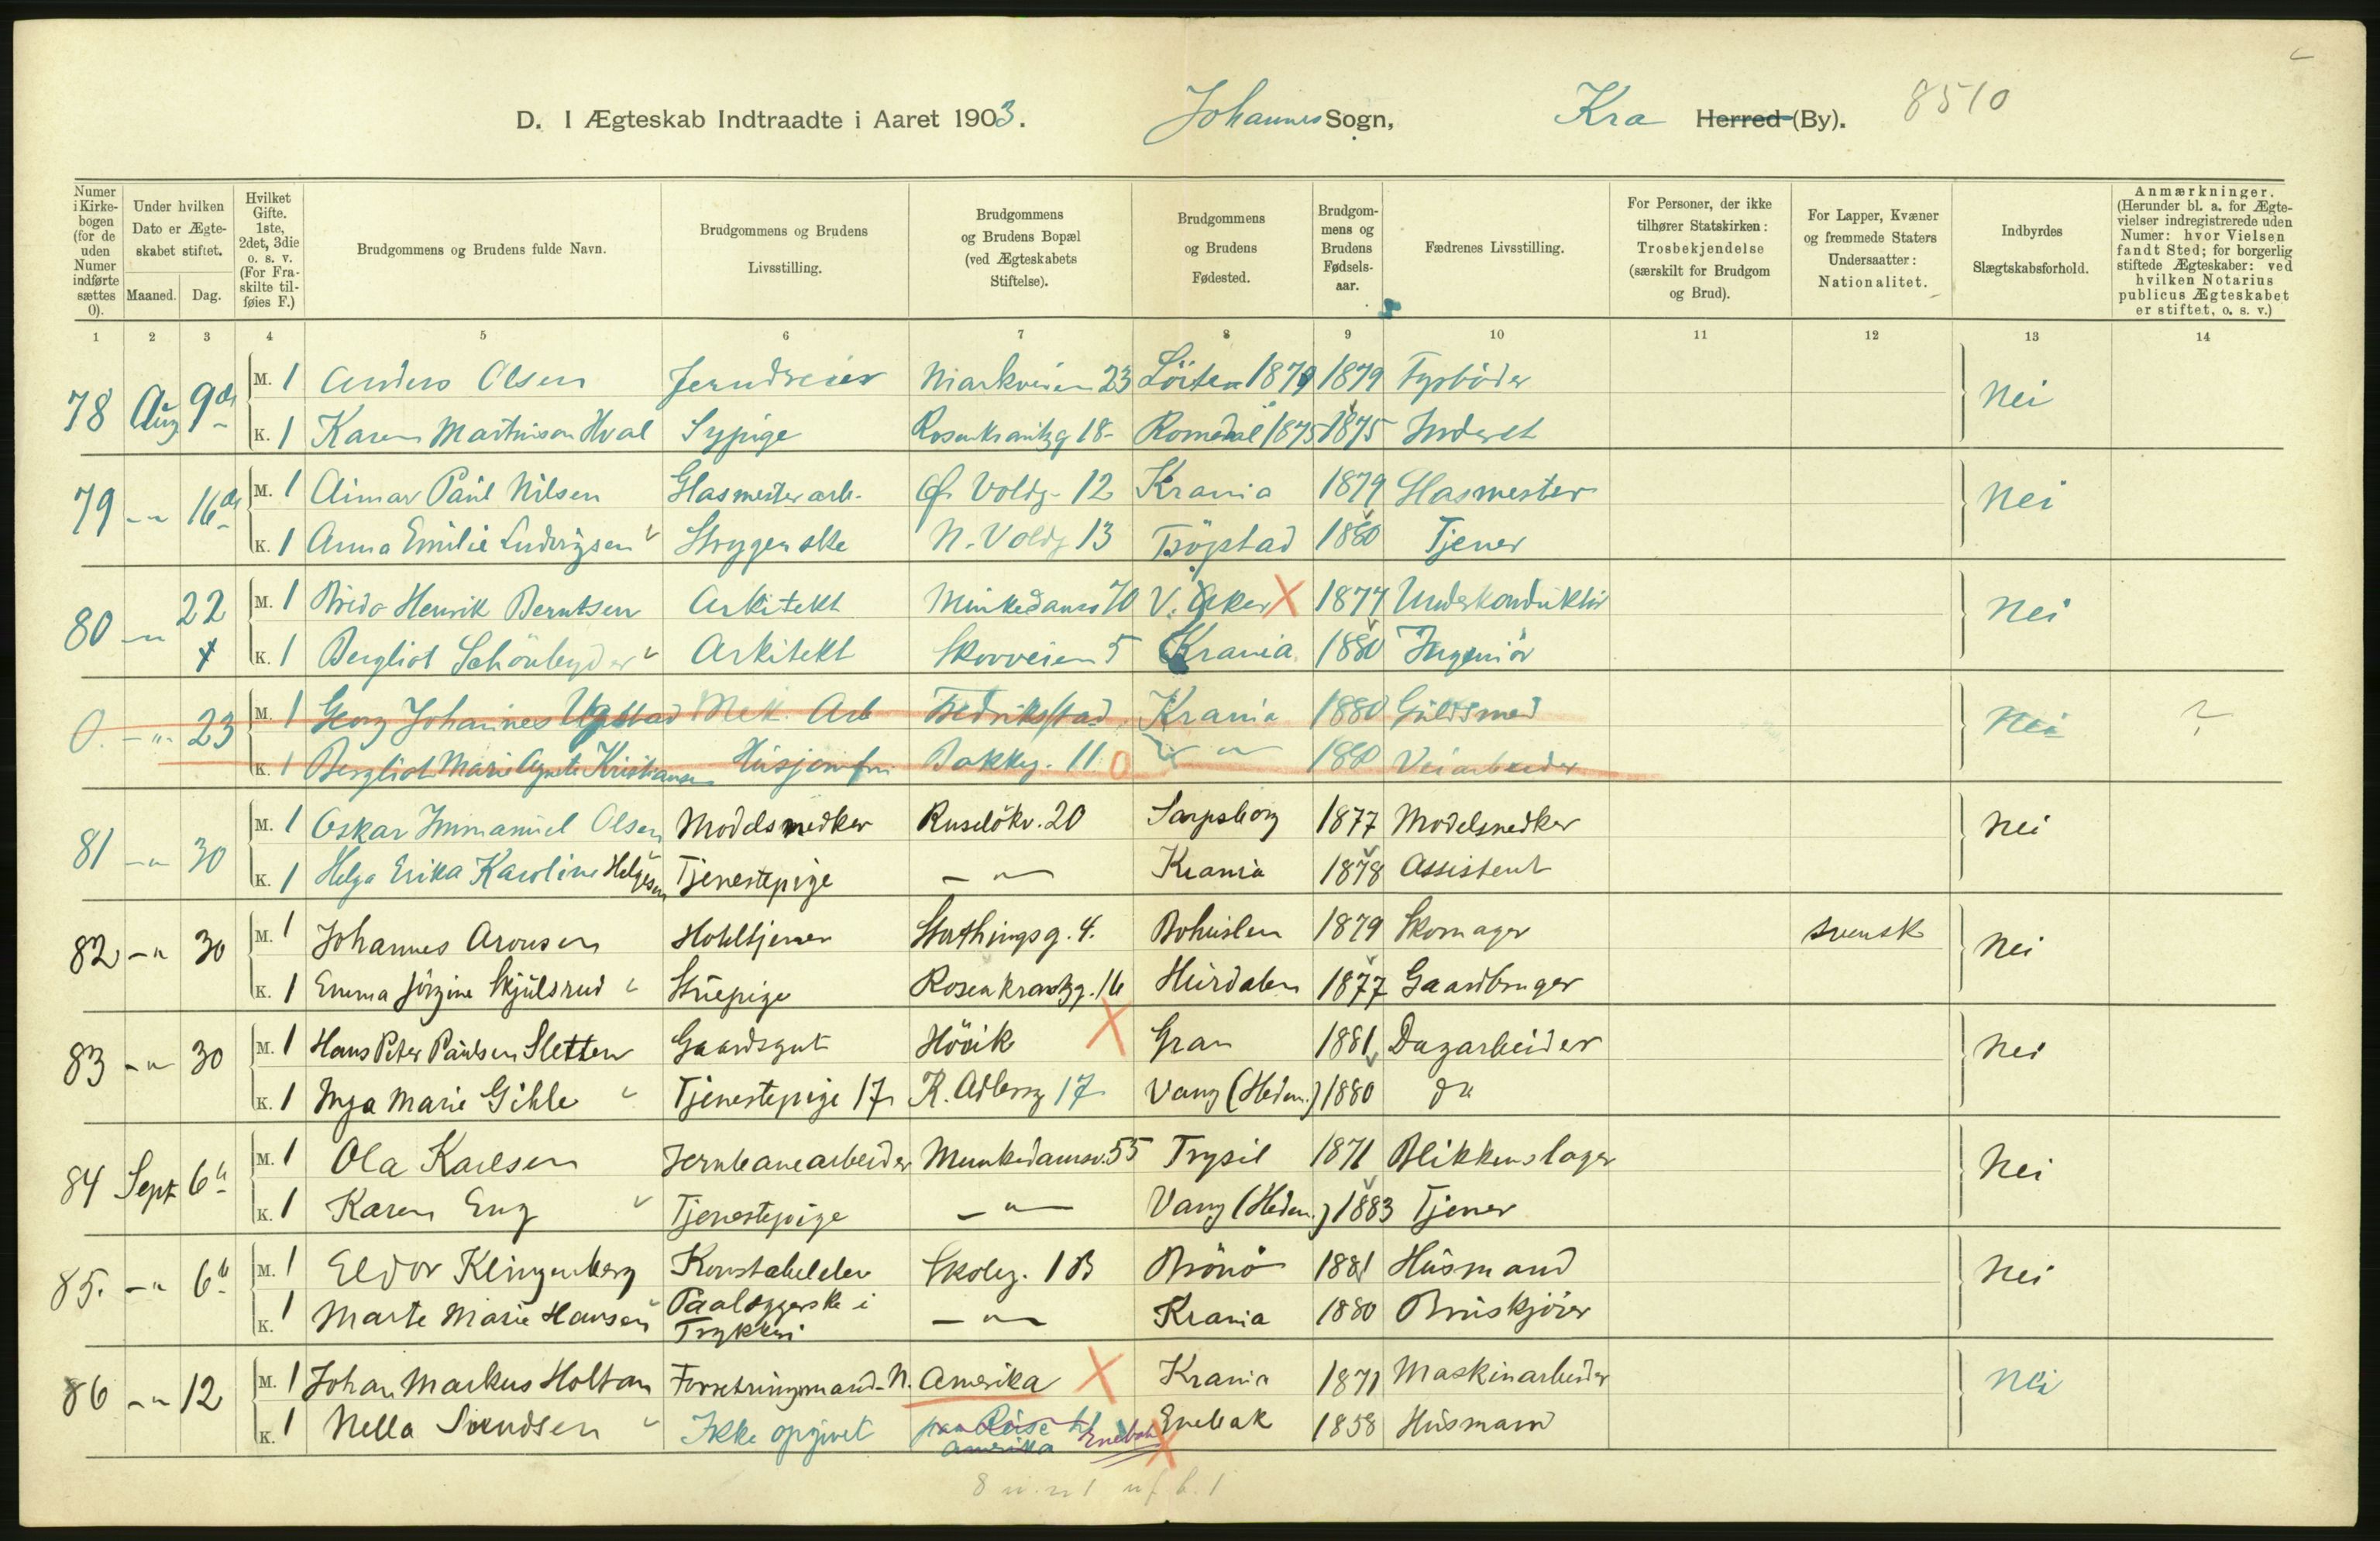 D. I Ægteskab Indtraadte i Aaret 1903. Johannes Sogn, Kra Herred (By). 8510
Numer i Kirke-bogen (for de uden Numer indførte sættes 0).
Under hvilken Dato er Ægte-skabet stiftet.
Maaned. Dag.
Hvilket Gifte. 1ste, 2det, 3die o. s. v. (For Fra-skilte til-føies F.)
Brudgommens og Brudens fulde Navn.
Brudgommens og Brudens Livsstilling.
Brudgommens og Brudens Bopæl (ved Ægteskabets Stiftelse).
Brudgommens og Brudens Fødested.
Brudgom-mens og Brudens Fødsels-aar.
Fædrenes Livsstilling.
For Personer, der ikke tilhører Statskirken: Trosbekjendelse (særskilt for Brudgom og Brud).
For Lapper, Kvæner og fremmede Staters Undersaatter: Nationalitet.
Indbyrdes Slægtskabsforhold.
Anmærkninger. (Herunder bl. a. for Ægte-vielser indregistrerede uden Numer: hvor Vielsen fandt Sted; for borgerlig stiftede Ægteskaber: ved hvilken Notarius publicus Ægteskabet er stiftet, o. s. v.)
1 2 3 4 5 6 7 8 9 10 11 12 13 14
78 Aug 9de M. 1 Anders Olsen Jerndreier Markveien 23 Löiten 1879 1879 Fyrbøder Nei
K. 1 Karen Martinson Hval Sypige Rosenkrantzg 18 Romedal 1875 1875 Inderst
79 -"- 16de M. 1 Aimar Paul Nilsen Glasmesterarb. Ø. Voldg. 12 Krania 1879 Glasmester Nei
K. 1 Anna Emilie Ludvigsen Strygerske N. Voldg 13 Trögstad 1880 Tjener
80 -"- 22 M. 1 Bredo Henrik Berntsen Arkitekt Munkedamsv 70 V. Aker X 1877 Underkonduktör Nei
K. 1 Bergliot Schönheyder Arkitekt Skovveien 5 Krania 1880 Ingeniör
0. -"- 23 M. 1 Georg Johannes Ugstad Mek. Arb Fredriksstad Krania 1880 Guldsmed Nei ?
K. 1 Bergliot Marie Agnete Kristiansen Husjomfru Bakkeg. 11. 0 -"- 1880 Veiarbeider
81 -"- 30 M. 1 Oskar Immanuel Olsen Modelsnedker Ruselökv. 20 Sarpsborg 1877 Modelsnedker Nei
K. 1 Helga Erika Karoline Helgesen Tjenestepige -"- Krania 1878 Assistent
82 -"- 30 M. 1 Johannes Aronsen Hoteltjener Storthingsg. 4. Bohuslen 1879 Skomager svensk Nei
K. 1 Emma Jörgine Skjulsrud Stuepige Rosenkrantzg. 16 Hurdalen 1877 Gaardbruger
83 -"- 30 M. 1 Hans Peter Paulsen Sletten Gaardsgut Hövik X Gran 1881 Dagarbeider Nei
K. 1 Inga Marie Gihle Tjenestepige 17 K. Adlersg 17 Vang (Hedem.) 1880 do
84 Sept 6te M. 1 Ola Karlsen Jernbanearbeider Munkedamsv. 55 Trysil 1871 Blikkenslager Nei
K. 1 Karen Eng Tjenestepige -"- Vang (Hedem.) 1883 Tjener
85. -"- 6te M. 1 Eldor Klingenberg Konstabelelev Skoleg. 1 B Brönö 1881 Husmand Nei
K. 1 Marte Marie Hansen Paalæggerske i Trykkeri -"- Krania 1880 Bruskjörer
86 -"- 12 M. 1 Johan Markus Holtan Forretningsmand N. Amerika X Krania 1871 Maskinarbeider Nei
K. 1 Nella Svendsen Ikke opgivet paa Reise til Amerika Enebak X Enebak 1858 Husmand